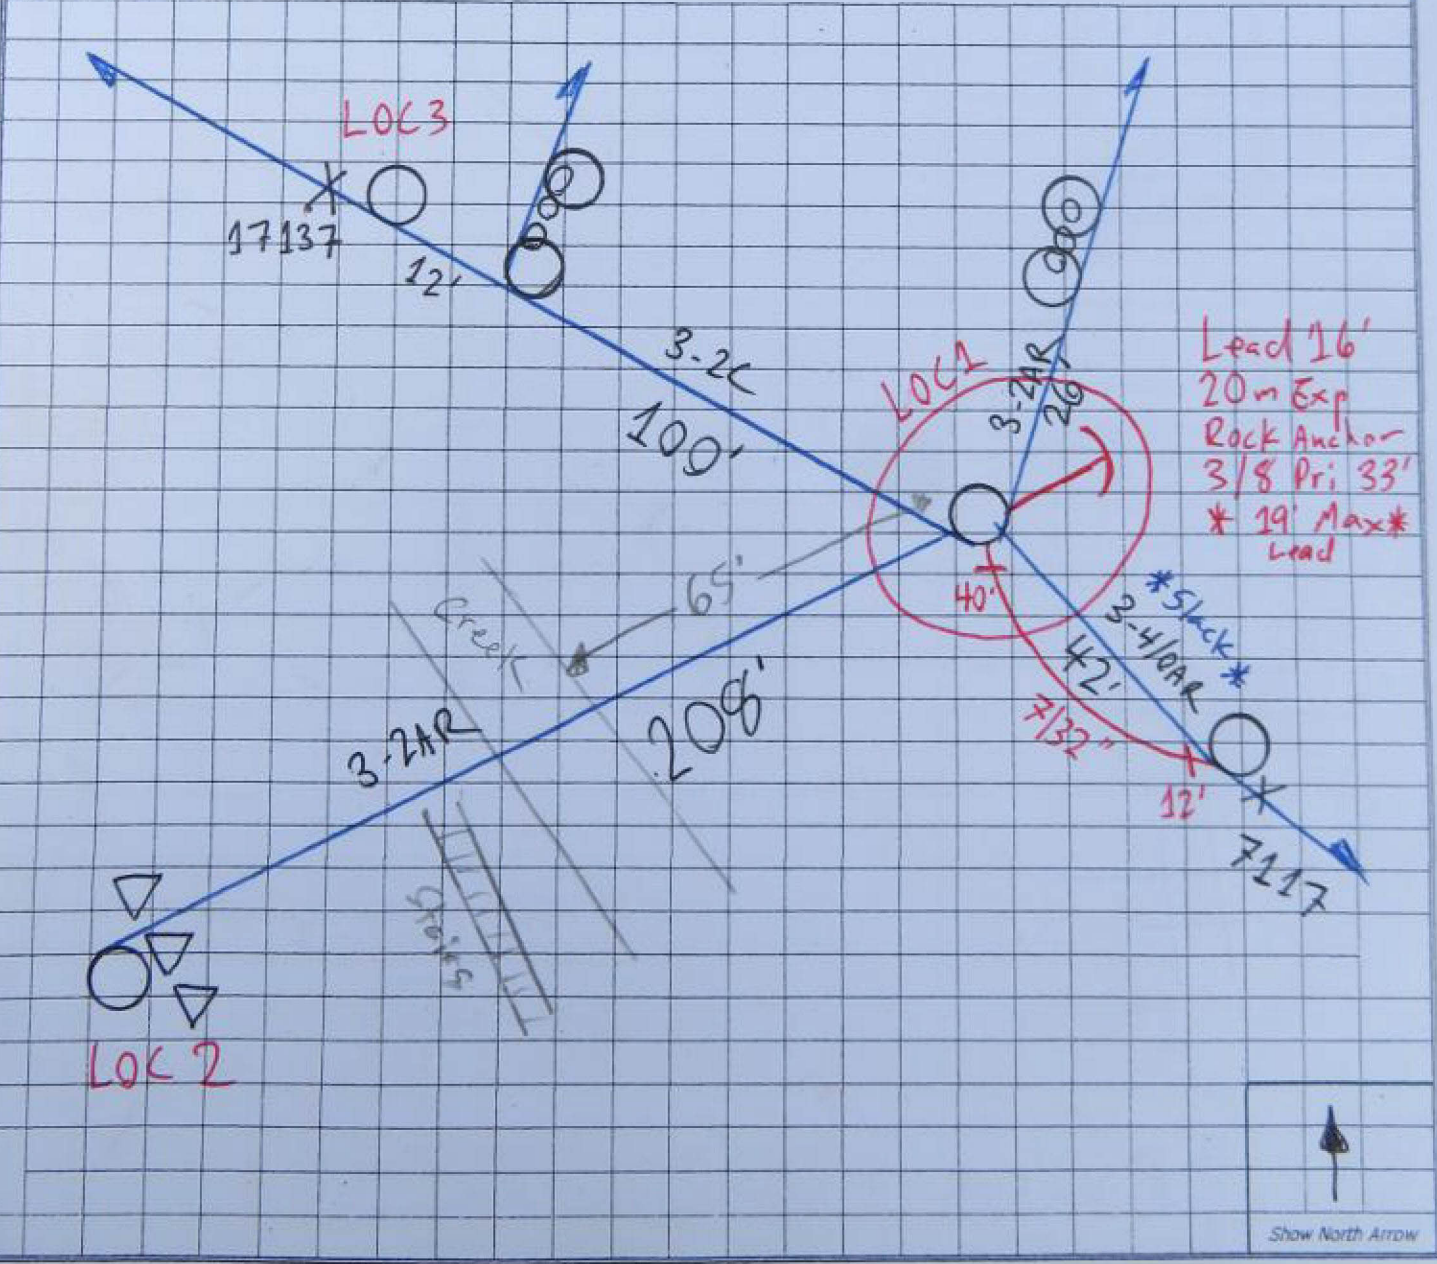 LOC3
17137
12'
3-2C
100'
LOC1
3-2AR
26'
Lead 16'
20m Exp
Rock Anchor
3/8 Pri 33'
* 19' Max*
Lead
65'
Creek
40'
*Slack*
3-4/0AR
42'
7/32"
12'
7117
3-2AR
208'
Stairs
LOC 2
Show North Arrow